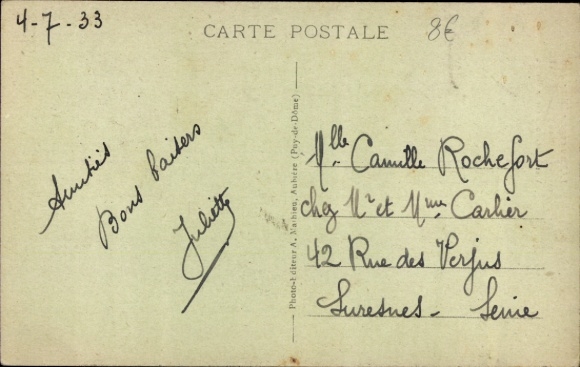 4-7-33
CARTE POSTALE
8€
Amitiés
Bons baisers
Juliette
Photo-Editeur A. Mathieu, Aubière (Puy-de-Dôme)
Mlle Camille Rochefort
chez Mr et Mme Carlier
42 Rue des Verjus
Suresnes - Seine